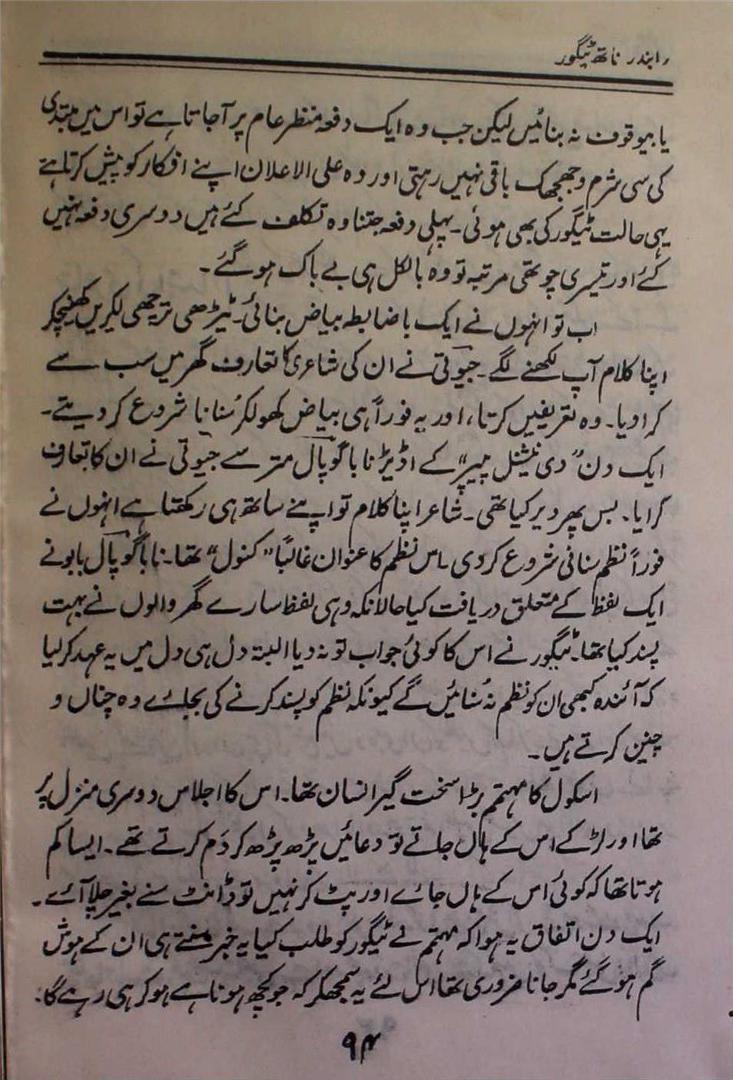 رابندر ناتھ ٹیگور
یا بیوقوف نہ بنائیں لیکن جب وہ ایک دفعہ منظر عام پر آجاتا ہے تو اس میں مبتدی
کی سی شرم و جھجھک باقی نہیں رہتی اور وہ علی الاعلان اپنے افکار کو پیش کرتا ہے
یہی حالت ٹیگور کی بھی ہوئی۔ پہلی دفعہ جتنا وہ تکلف کئے ہیں دوسری دفعہ نہیں
کئے اور تیسری چوتھی مرتبہ تو وہ بالکل ہی بے باک ہو گئے۔
اب تو انہوں نے ایک با ضابطہ بیاض بنائی۔ ٹیڑھی ترچھی لکیریں کھینچکر
اپنا کلام آپ لکھنے لگے۔ جیوتی نے ان کی شاعری کا تعارف گھر میں سب سے
کرا دیا۔ وہ تعریفیں کرتا، اور یہ فوراً ہی بیاض کھولکر سُنانا شروع کر دیتے۔
ایک دن "دی نیشنل پیپر" کے اڈیٹر نابا گوپال متر سے جیوتی نے ان کا تعارف
کرایا۔ بس پھر دیر کیا تھی۔ شاعر اپنا کلام تو اپنے ساتھ ہی رکھتا ہے انہوں نے
فوراً نظم سنانی شروع کر دی۔ اس نظم کا عنوان غالباً "کنول" تھا۔ نابا گوپال بابو نے
ایک لفظ کے متعلق دریافت کیا حالانکہ وہی لفظ سارے گھر والوں نے بہت
پسند کیا تھا۔ ٹیگور نے اس کا کوئی جواب تو نہ دیا البتہ دل ہی دل میں یہ عہد کر لیا
کہ آئندہ کبھی ان کو نظم نہ سُنائیں گے کیونکہ نظم کو پسند کرنے کی بجائے وہ چناں و
چنیں کرتے ہیں۔
اسکول کا مہتمم بڑا سخت گیر انسان تھا۔ اس کا اجلاس دوسری منزل پر
تھا اور لڑکے اس کے ہاں جاتے تو دعائیں پڑھ پڑھ کر دَم کرتے تھے۔ ایسا کم
ہوتا تھا کہ کوئی اس کے ہاں جائے اور پٹ کر نہیں تو ڈانٹ سنے بغیر چلا آئے۔
ایک دن اتفاق یہ ہوا کہ مہتمم نے ٹیگور کو طلب کیا یہ خبر سنتے ہی ان کے ہوش
گم ہو گئے مگر جانا ضروری تھا اس لئے یہ سمجھکر کہ جو کچھ ہونا ہے ہو کر ہی رہے گا۔
۹۴